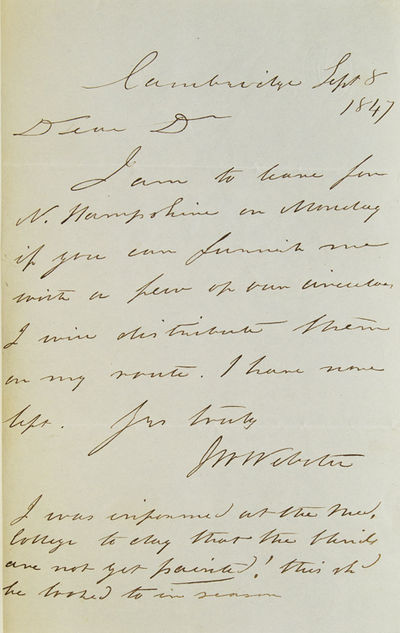 Cambridge Sept 8
1847
Dear Dr
I am to leave for
N. Hampshire on Monday
if you can furnish me
with a few of our circulars
I will distribute them
on my route. I have none
left. Yrs truly
JW Webster
I was informed at the Med.
College to day that the blinds
are not yet painted! this shd
be looked to in season